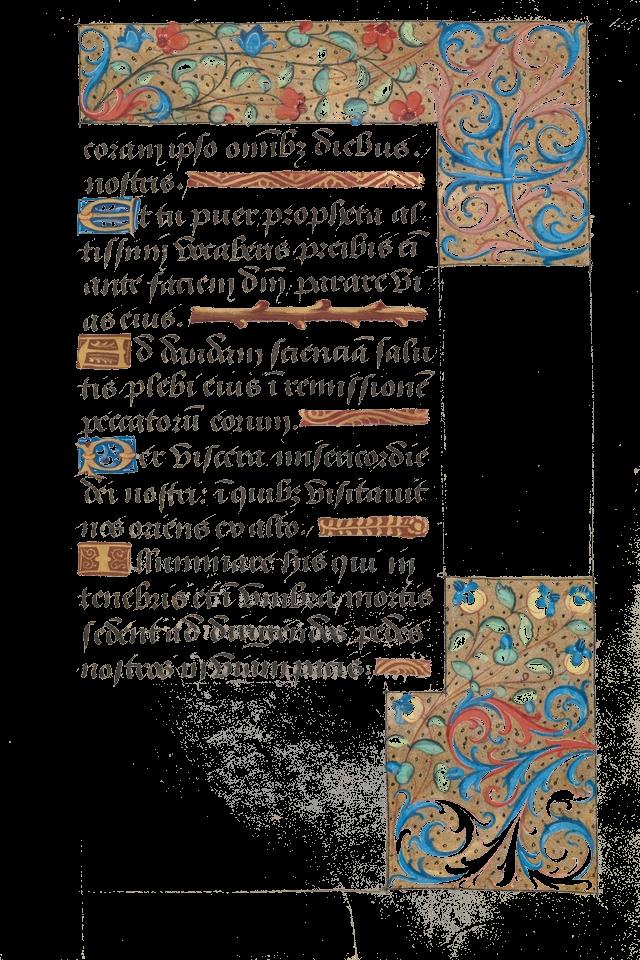 coram ipso om̅ib⁊ diebus.
nostris.
Et tu puer propheta al-
tissimi vocaberis preibis eī
ante faciem dnī parare vi
as eius.
Ad dandam scienciā salu
tis plebi eius ī remissionē
peccatorū eorum.
Per viscera misericordie
dei nostri: ī quib⁊ visitauit
nos oriens ex alto.
Illuminare his qui in
tenebris et ī vmbra mortis
sedent ad dirigendos pedes
nostros ī viam pacis.